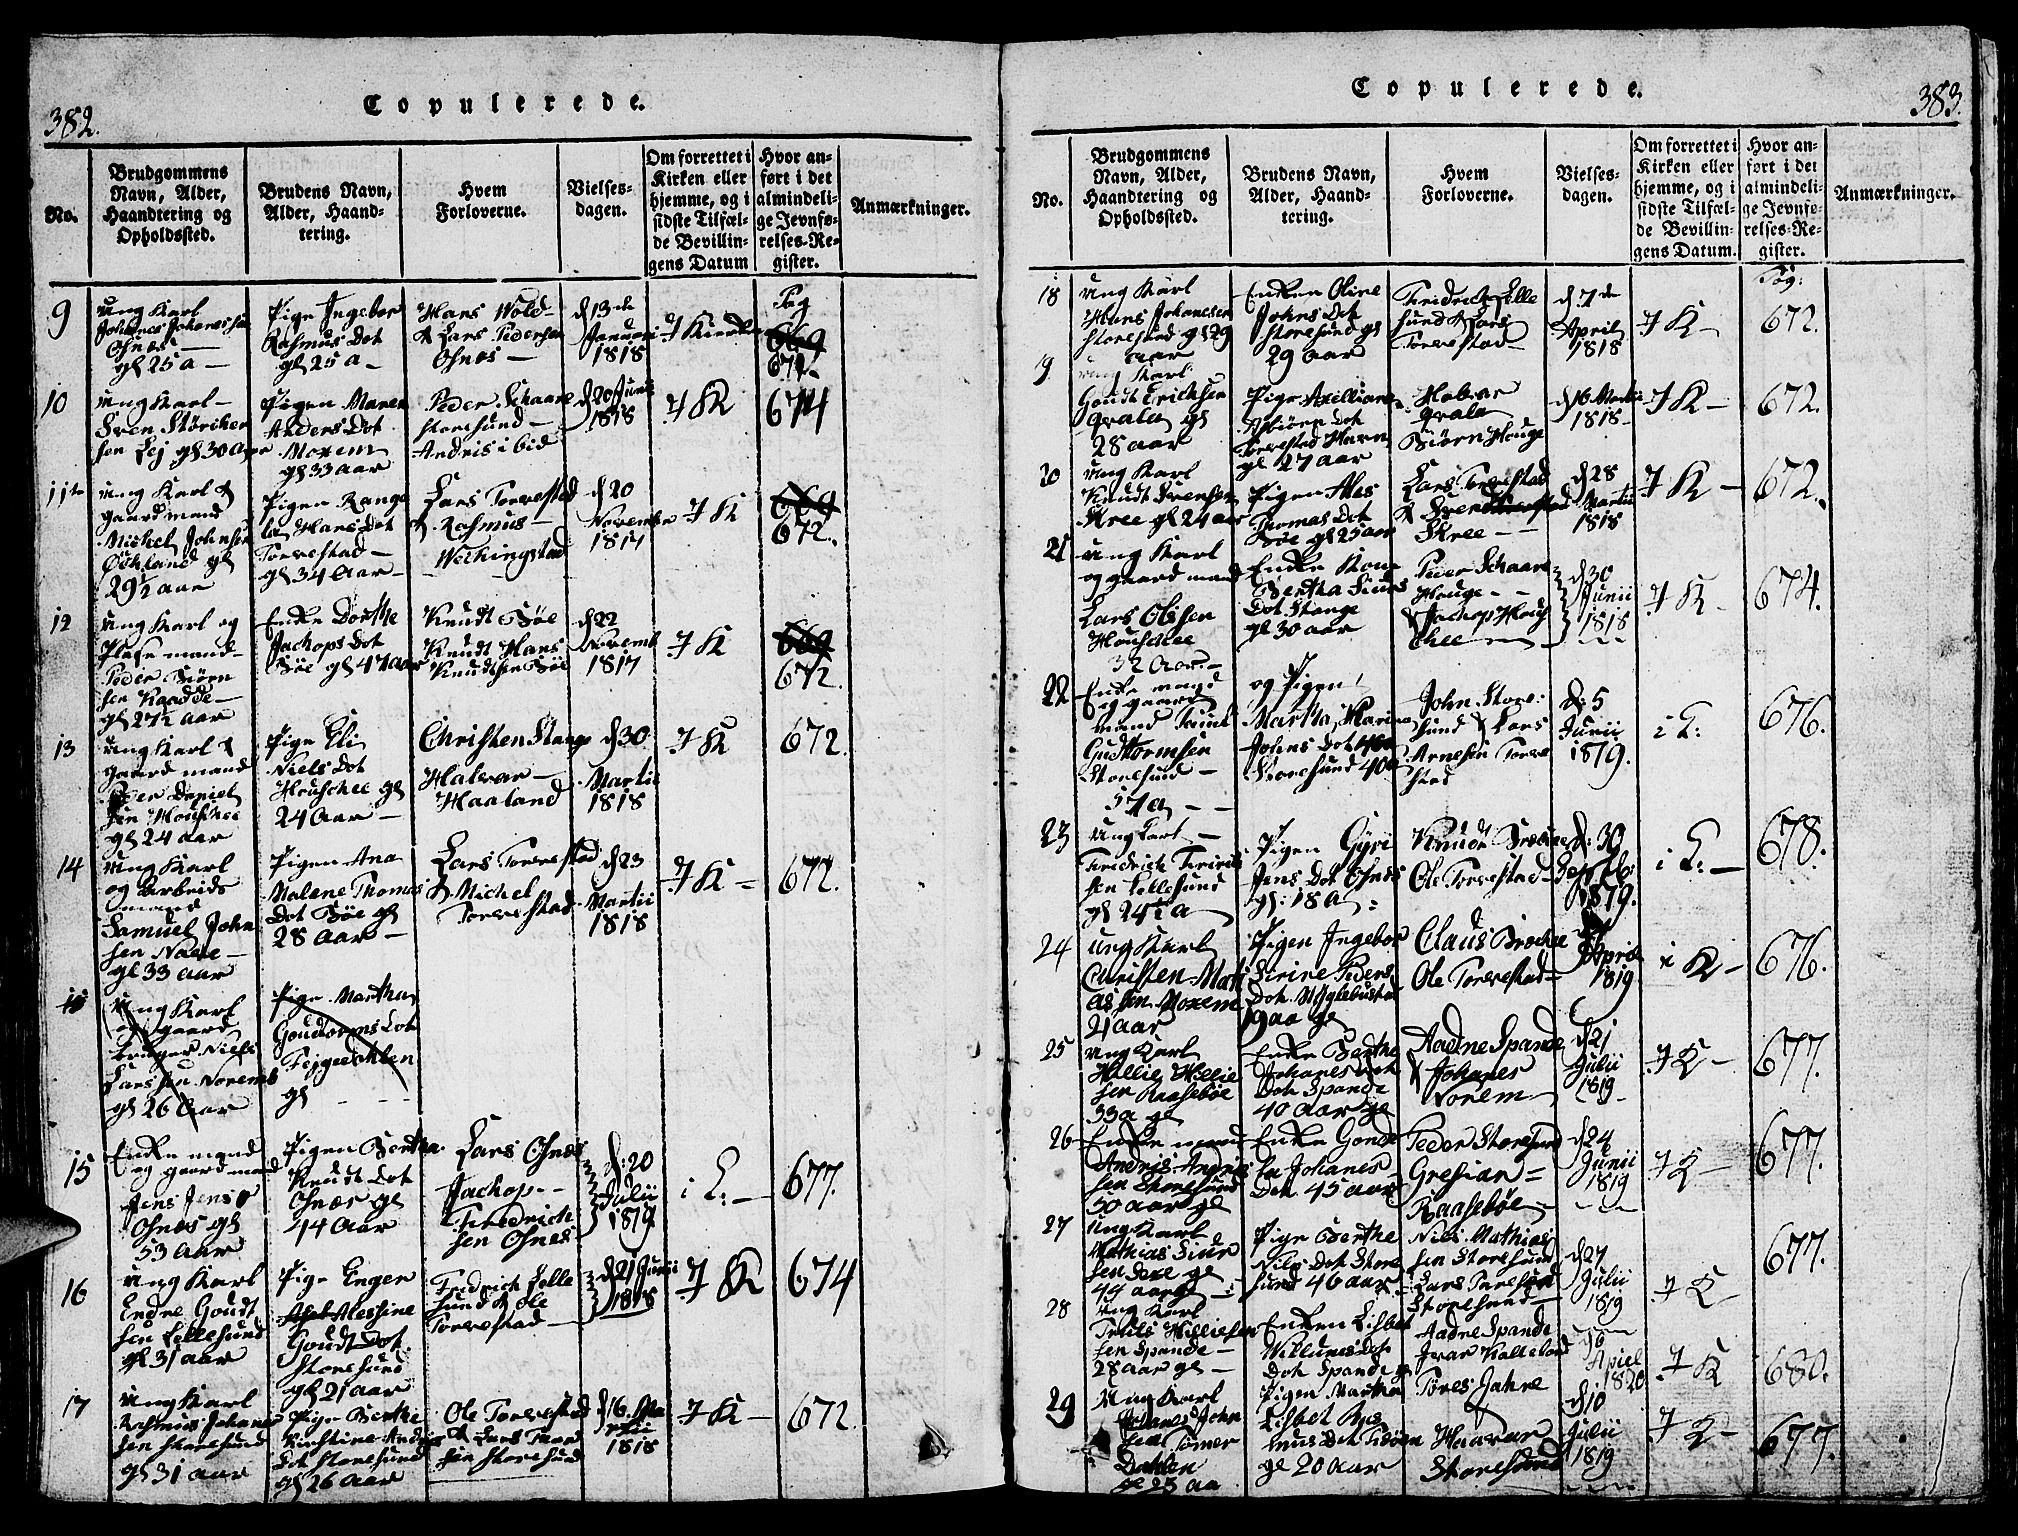 382.
Copulerede.
No.
Brudgommens
Navn, Alder,
Haandtering og
Opholdssted.
Brudens Navn,
Alder, Haand-
tering.
Hvem
Forloverne.
Vielses-
dagen.
Om forrettet i
Kirken eller
hjemme, og i
sidste Tilfæl-
de Bevillin-
gens Datum
Hvor an-
ført i det
almindeli-
ge Jevnfø-
relses-Re-
gister.
Anmærkninger.
9
Ung Karl
Johanes Johanessen
Osnæs
gl 25 a
Pige Ingebor
Rasmus Dot
gl 25 a
Hans Wold
& Lars Pedersen
Osnæs
d 13de
Januari
1818
I Kirken
Pag
669
672
10
Ung Karl
Sven Störcker
sen Lej gl 30 Aar
Pigen Maren
Anders Dot
Moxem
gl 33 aar
Peder Schaare
storesund
Andris ibid
d 20 Juni
1818
I K
674
11te
Ung Karl &
gaardmand
Michel Johnsen
gl
29½ aar
Pigen Range
la Hans Dot
Torvestad
gl 34 Aar
Lars Torvestad
& Rasmus
Weckingstad
d 20
November
1817
I K
669
672.
12
Ung Karl og
mand
Peder Biørn
sen Kaadde
gl 27½ aar
Enke Dorthe
Jachops Dot
Bøe gl 47 aar
Knudt Bøe
Knudt Hans
Knudtsen Bøe
d 22
Novemb
1817
I K
669
672.
13
Ung Karl &
gaardmand
Peder Daniel
sen Houschee
gl 24 aar
Pige Eli
Niels Dot
Houschee gl
24 Aar
Christen Stange
Halvar
Haaland
d 30
Martii
1818
I K
672.
14
Ung Karl
og arbeids
mand
Samuel John
sen
gl 33 aar
Pigen Ana
Malene Thomas
Dot Bøe gl
28 Aar
Lars Torvestad
& Michel
Torvestad
d 23
Martii
1818
I K
672.
15
Ung Karl
og gaard
bruger Niels
Larssen Noremb
gl 26 Aar
Pige Martha
Goudtorms Dot
gl
15
Enke mand
og gaardmand
Jens Jens
Osnæs gl
53 Aar
Pigen Bertha
Knudt Dot
Osnæs gl
44 Aar
Lars Osnæs
Jachop
Friedrich
sen Osnes
d: 20
Julii
1819
i K:
677.
16
Ung Karl
Endre Goudt
sen Lellesund
gl 31 aar
Pige Enger
Messine
Goudt Dot
Storesund
gl 21 aar
Fredrich Lelle
sund & Ole
Torvestad
d 21 Junii
1818
I K
674
17
Ung Karl
Rasmus Johanes
sen Storesund
gl 31 aar
Pige Berthe
Kirstine Andris
Dot storesund
gl 26 aar
Ole Torvestad
& Lars
sen Storesund
d 16. Ma
rtii
1818
I K
672
Copulerede.
383.
No.
Brudgommens
Navn, Alder,
Haandtering og
Opholdssted.
Brudens Navn,
Alder, Haand-
tering.
Hvem
Forloverne.
Vielses-
dagen.
Om forrettet i
Kirken eller
hjemme, og i
sidste Tilfæl-
de Bevillin-
gens Datum.
Hvor an-
ført i det
almindeli-
ge Jevnfø-
relses-Re-
gister.
Anmærkninger.
18
Ung Karl
Hans Johanesen
Storesund gl 29
aar
Enken Oline
Johns Dot
Storesund gl
29 aar
Fridrich Lelle
sund & Lars
Torvestad
d. 7de
April
1818
I K
Pag:
672.
19
Ung Karl
Goudt Erichsen
Qvala gl
28 aar
Pige
Asbiørn Dot
Torvestad Havn
gl 27 aar
Halvar
Qvala
Biørn Houge
d 16 Martii
1818
I K
672.
20
Ung Karl
Knudt Svensen
Skree gl 24 aar
Pigen Ales
Thomas Dot
Bøe gl 25 aar
Lars Torvestad
& Svend
Skree
d 28
Martii
1818
I K
672.
21
Ung Karl
og gaardmand
Lars Olssen
Houschee
32 Aar
Enke Kone
Bertha Siurs
Dot Stange
gl 30 aar
Peder Schaare
Houge
& Jachop Hou
schee
d 30
Junii
1818
I K
674.
22
Enke mand
og gaard
mand
Gudtormsen
Storesund
57 a
og Pigen
Martha Marine
Johns Dot
Storesund 40 a
John Store:
sund & Lars
Arnesen Torve
stad
D: 5
Junii
1819.
i K:
676.
23
Ung Karl
Fredrich Fridrich
sen Lellesund
gl 24½ a
Pigen Gyri
Jens Dot Osnæs
gl: 18 a
Knudt
Ole Torvestad
d: 30
Septbr:
1819.
i K:
678.
24
Ung Karl
Christen Mathi
assen Moxem
21 aar
Pigen Ingebor
Sirine Peders
Dot
19 aa gl
Claus
Ole Torvestad
April
1819
i K
676.
25
Ung Karl
Hellie Hellie
sen Raasebøe
33 a gl
Enke Berthe
Johanes Dot
Dot Spande
40 Aar gl
Aadne Spande
& Johanes
Norem
d 21
Julii
1819
I K
677.
26
Enke mand
Andris Andris
sen Storesund
50 aar gl
Enke Gonde
la Johanes
Dot. 45 aar
Peder Storesund
Gresian
Raasebøe
d 24
Junii
1819
I K
677.
27
Ung Karl
Mathias Siur
sen Sexe gl
44 aar
Pige Berthe
Nils Dot Store
sund 46 aar
Niels Mathias
sen Storesund
Lars
Storesund
d 27
Julii
1819
I K
677.
28
Ung Karl
Truls Helliesen
sen Spande
28 aar gl
Enken Lisbet
Dot Spande gl
Aadne Spande
Ivar
April
1820
I K
680.
29
Ung Karl
Johanes John
sen Tømer
Dahlen
gl 25 aa
Pigen Martha
Lisbet Ras
mus Dot
gl 20 Aar
Tøres Jahre
Haavar
Storesund
d 10
Julii
1819
I K
677.